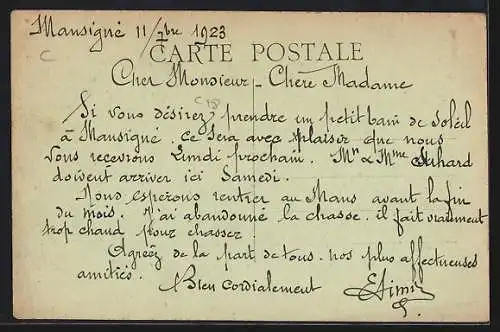 Mansigné 11/7bre 1923
CARTE POSTALE
Cher Monsieur - Chère Madame
Si vous désirez prendre un petit bain de Soleil
à Mansigné. ce sera avec plaisir que nous
vous recevrons Lundi prochain. Mr & Mme
doivent arriver ici Samedi.
Nous espérons rentrer au Mans avant la fin
du mois. J'ai abandonné la chasse. il fait vraiment
trop chaud pour chasser
Agréez de la part de tous. nos plus affectueuses
amitiés.
Bien cordialement